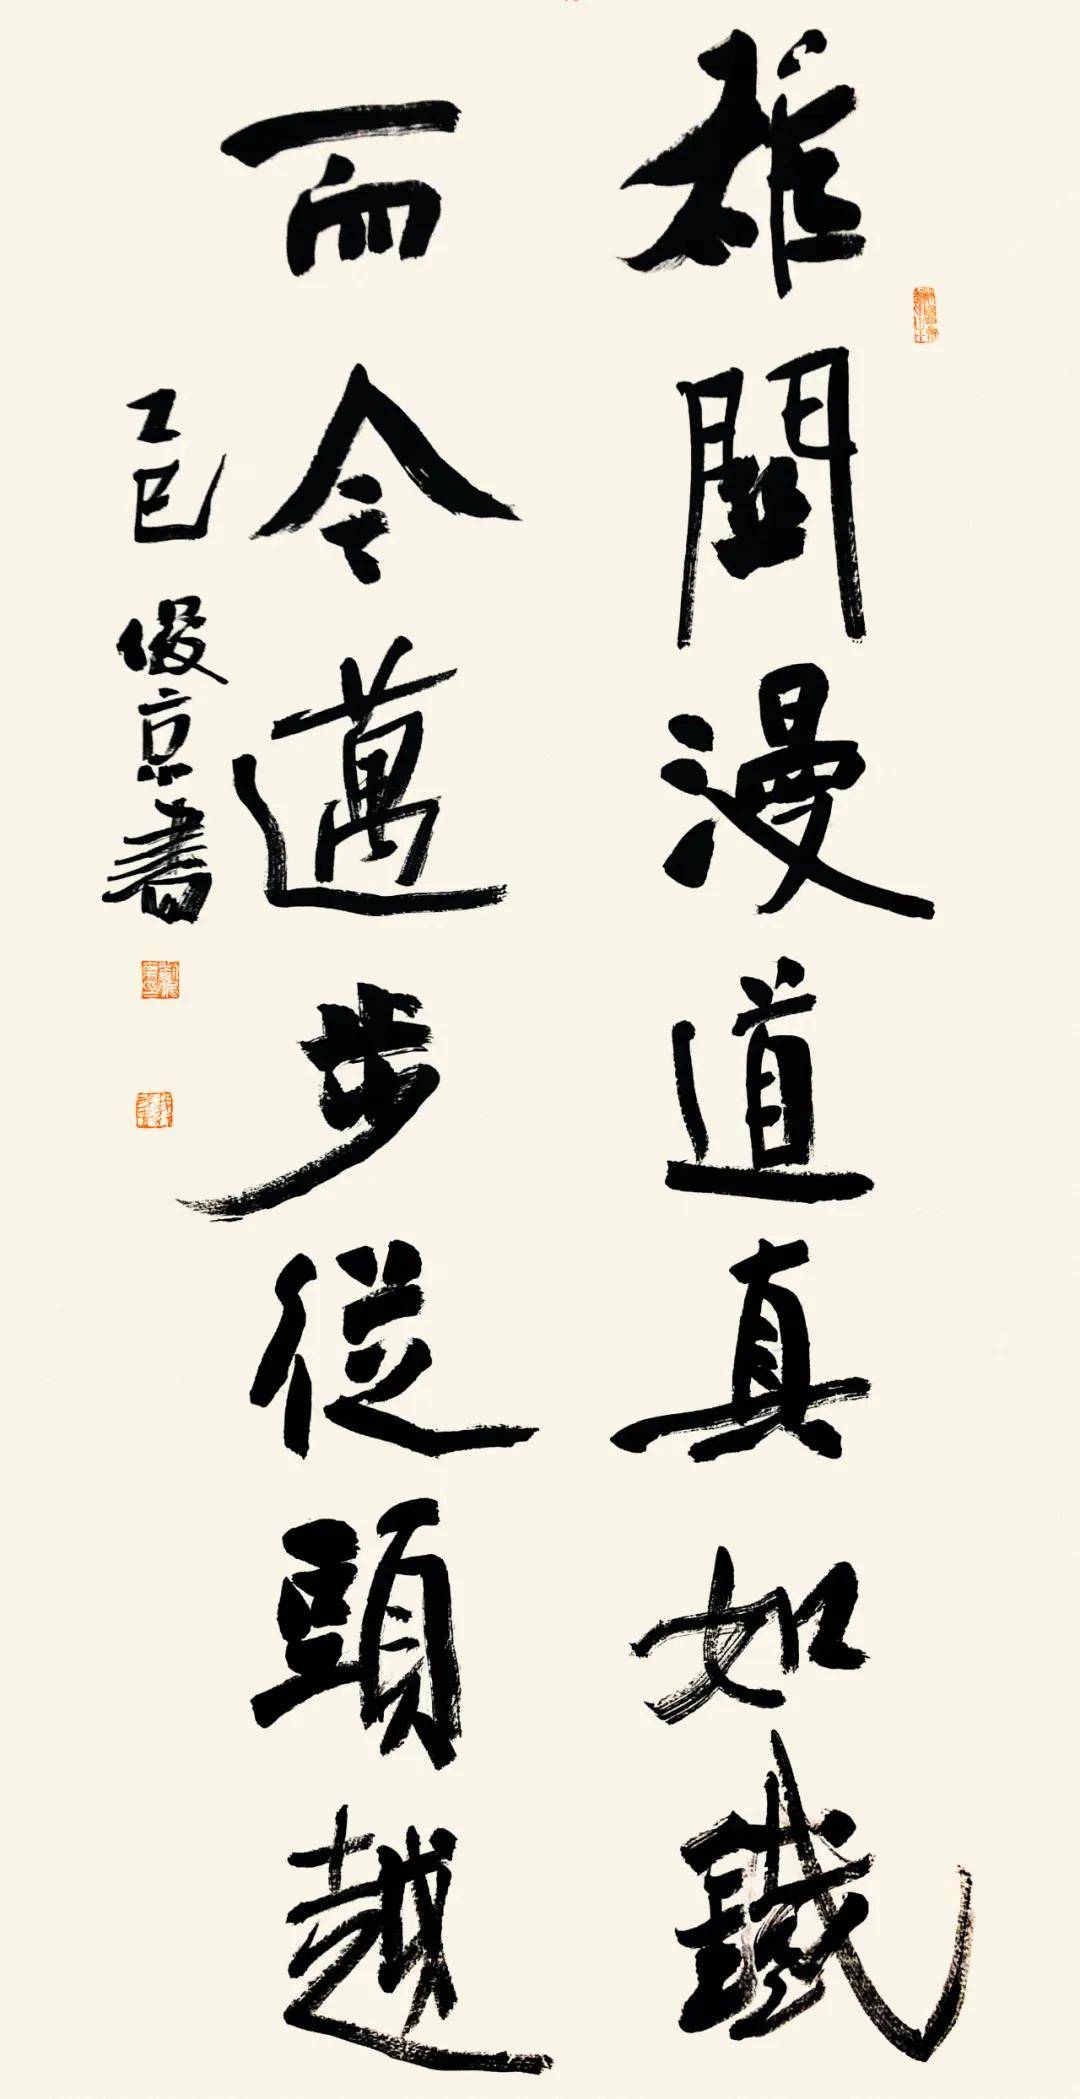 雄關漫道真如鐵
而今邁步從頭越
乙巳 俊京書